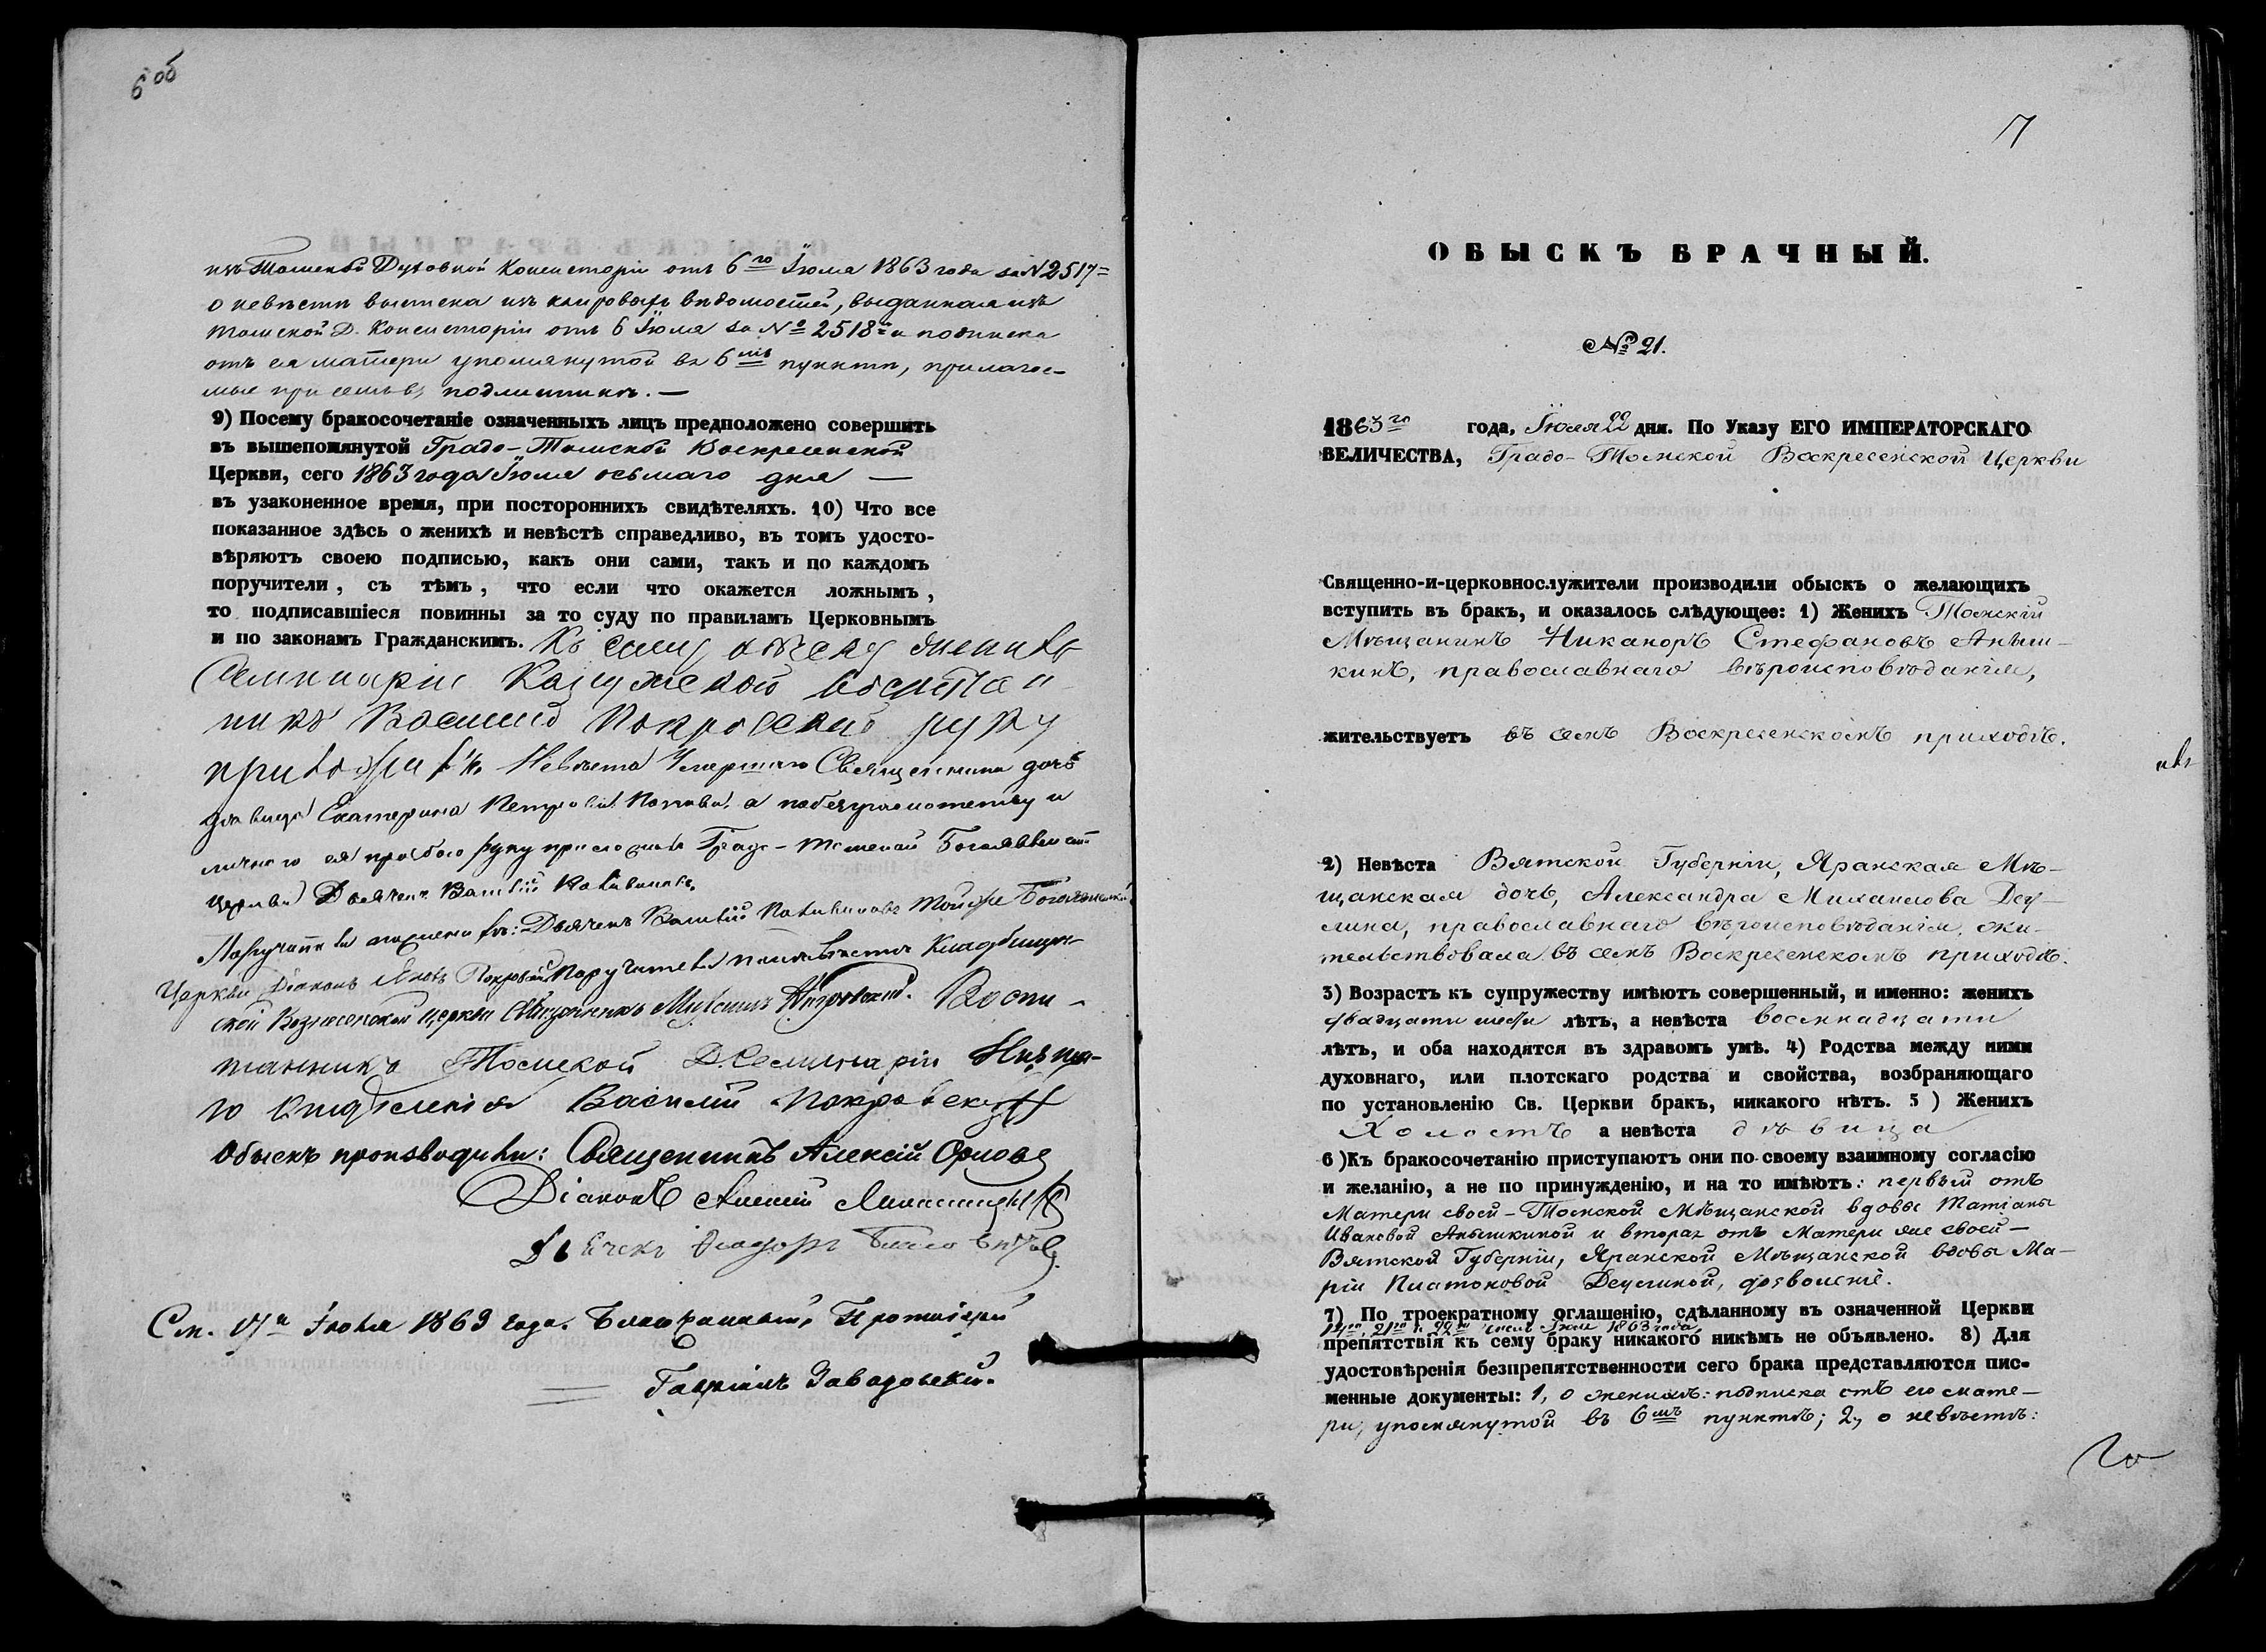 6 об
изъ Томской Духовной Консисторіи отъ 6го Іюля 1863 года за N 2517=
о невѣстѣ выписка изъ клировыхъ вѣдомостей, выданная изъ
Томской Д. Консисторіи отъ 6 Іюля за № 2518 и подписка
отъ ея матери упомянутой въ 6мъ пунктѣ, прилагае-
мые при семъ въ подлинникѣ. —
9) Посему бракосочетаніе означенныхъ лицъ предположено совершить
въ вышепомянутой Градо-Томской Воскресенской
Церкви, сего 1863 года Іюля осьмаго дня —
въ узаконенное время, при постороннихъ свидѣтеляхъ. 10) Что все
показанное здѣсь о женихѣ и невѣстѣ справедливо, въ томъ удосто-
вѣряютъ своею подписью, какъ они сами, такъ и по каждомъ
поручители, съ тѣмъ, что если что окажется ложнымъ,
то подписавшіеся повинны за то суду по правиламъ Церковнымъ
и по законамъ Гражданскимъ. Къ сему обыску женихъ
Семинаріи Калужской воспитан-
никъ Василій Покровскій руку
приложилъ. Невѣста Умершаго Священника дочь
дѣвица Екатерина Петрова Попова, а по безграмотству и
личною ея прозьбою руку приложилъ Градо-Томской Богоявленской
Церкви Дьячекъ
Поручители по женихѣ: Дьячекъ той же Богоявленской
Церкви Діаконъ Яковъ Поручители по невѣстѣ Кладбищен-
ской Вознесенской Церкви Священникъ Воспи-
танникъ Томской Д. Семинаріи Низша-
го Отдѣленія Василій Покровскій
Обыскъ производили: Священникъ Алексій Орловъ
Діаконъ Алексій
Дьячекъ Ѳеодоръ
См. 17 Іюля 1863 года. Благочинный, Протоіерей
Гавріилъ Завадовскій.
7
ОБЫСКЪ БРАЧНЫЙ.
№ 21.
1863го года, Іюля 22 дня. По Указу ЕГО ИМПЕРАТОРСКАГО
ВЕЛИЧЕСТВА, Градо-Томской Воскресенской Церкви
Священно-и-церковнослужители производили обыскъ о желающихъ
вступить въ бракъ, и оказалось слѣдующее: 1) Женихъ Томскій
Мѣщанинъ Никаноръ Стефановъ Аныш-
кинъ, православнаго вѣроисповѣданія,
жительствуетъ въ семъ Воскресенскомъ приходѣ.
2) Невѣста Вятской Губерніи, Яранская Мѣ-
щанская дочь, Александра Михаилова Деу-
лина, православнаго вѣроисповѣданія, жи-
тельствовала въ семъ Воскресенскомъ приходѣ.
3) Возрастъ къ супружеству имѣютъ совершенный, и именно: женихъ
двадцати шести лѣтъ, а невѣста восемнадцати
лѣтъ, и оба находятся въ здравомъ умѣ. 4) Родства между ними
духовнаго, или плотскаго родства и свойства, возбраняющаго
по установленію Св. Церкви бракъ, никакого нѣтъ. 5) Женихъ
Холостъ а невѣста дѣвица
6) Къ бракосочетанію приступаютъ они по своему взаимному согласію
и желанію, а не по принужденію, и на то имѣютъ: первый отъ
Матери своей - Томской Мѣщанской вдовы Татіаны
Ивановой Анышкиной и вторая отъ Матери же своей -
Вятской Губерніи, Яранской Мѣщанской вдовы Ма-
ріи Платоновой Деулиной, дозволеніе.
7) По троекратному оглашенію, сдѣланному въ означенной Церкви
21го и 22го Іюля 1863 года
препятствія къ сему браку никакого никѣмъ не объявлено. 8) Для
удостовѣренія безпрепятственности сего брака представляются пис-
менные документы: 1, о женихѣ: подписка отъ его мате-
ри, упомянутой въ 6мъ пунктѣ; 2, о невѣстѣ: